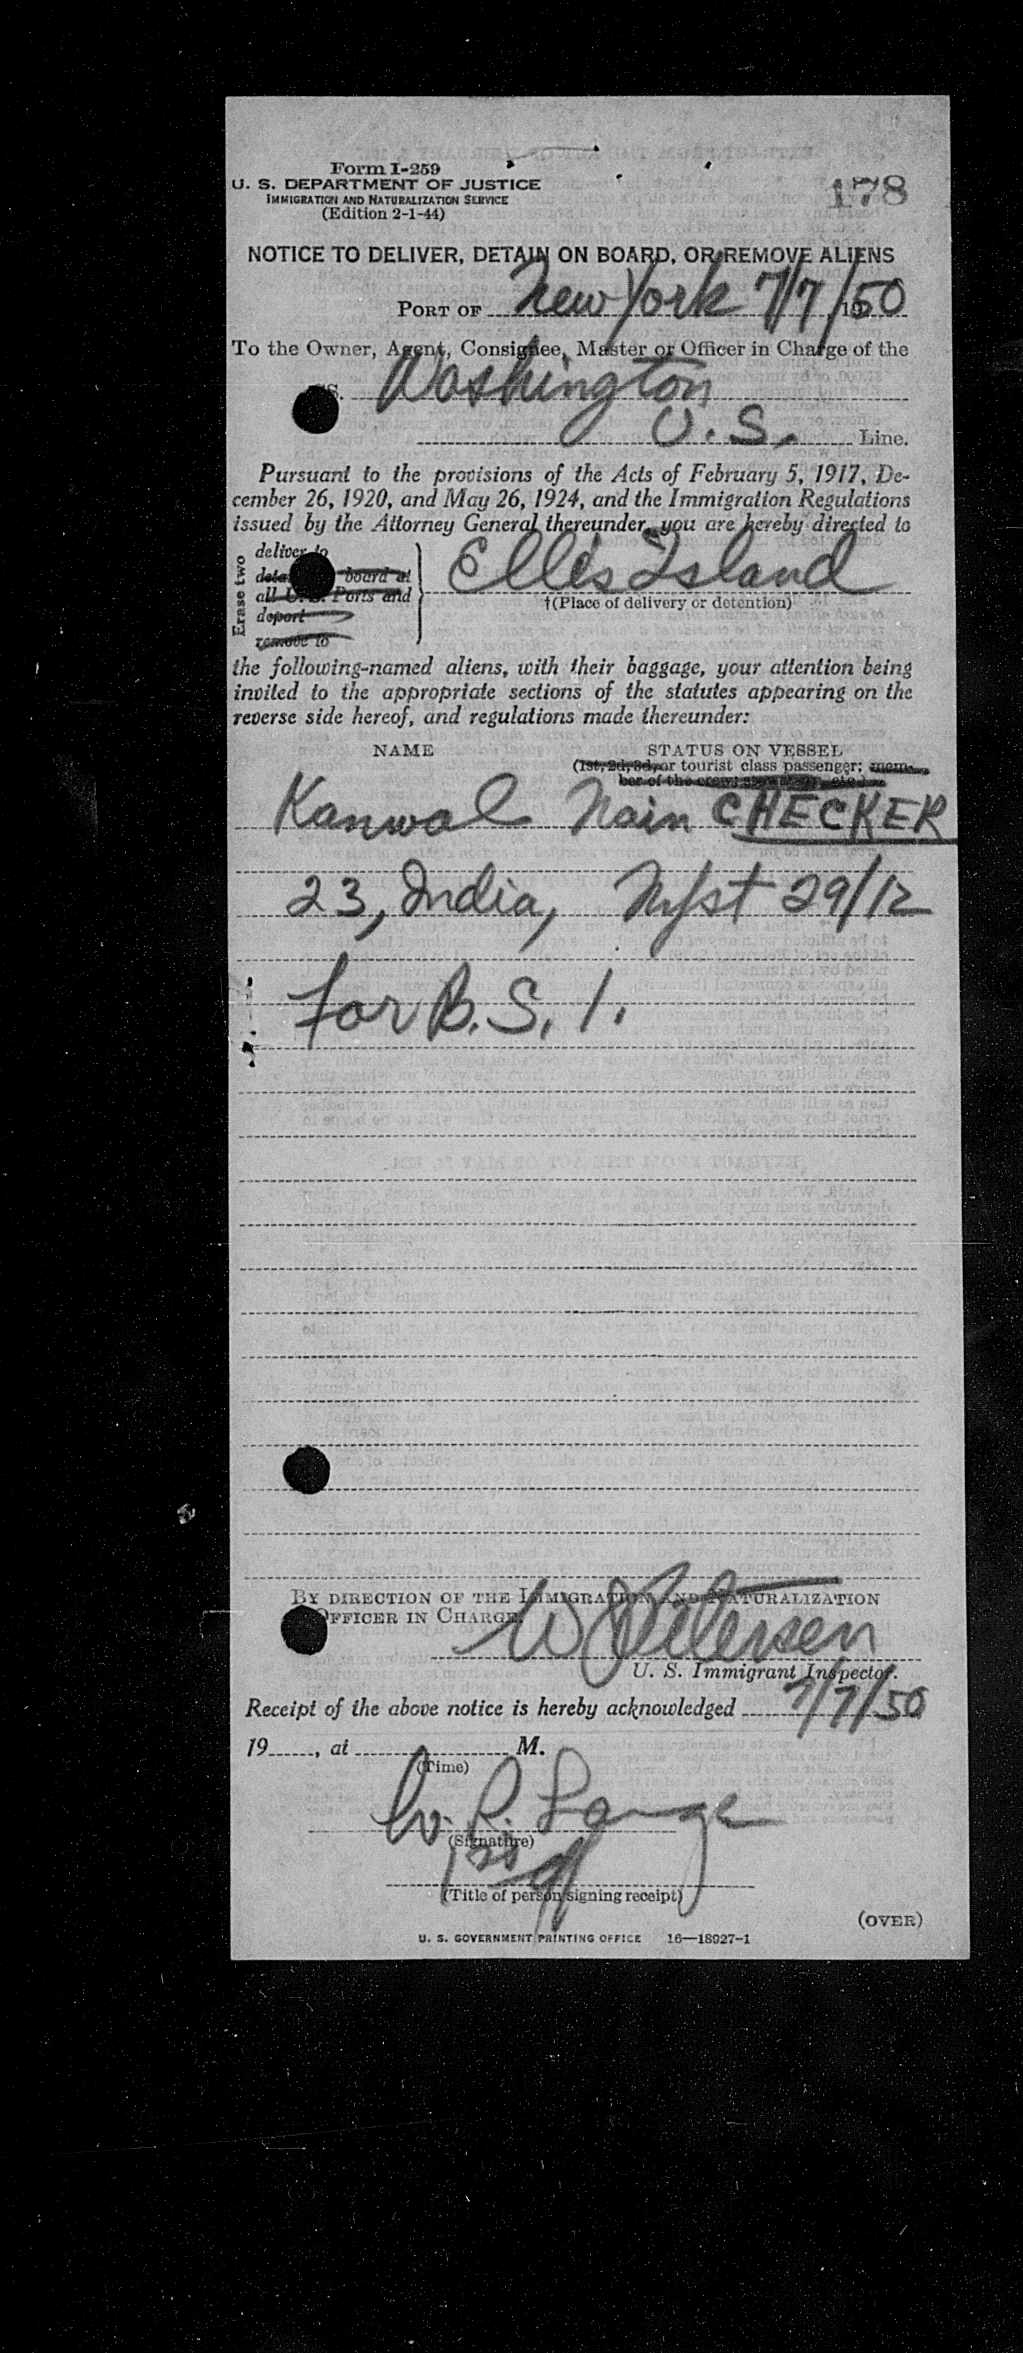 Form I-259
U. S. DEPARTMENT OF JUSTICE
IMMIGRATION AND NATURALIZATION SERVICE
(Edition 2-1-44)
178
NOTICE TO DELIVER, DETAIN ON BOARD, OR REMOVE ALIENS
PORT OF New York 7/7/50
To the Owner, Agent, Consignee, Master or Officer in Charge of the
S. Washington
U. S. Line.
Pursuant to the provisions of the Acts of February 5, 1917, De-
cember 26, 1920, and May 26, 1924, and the Immigration Regulations
issued by the Attorney General thereunder, you are hereby directed to
Erase two
deliver to
board at
all U. S. Ports and
deport
remove to
Ellis Island
†(Place of delivery or detention)
the following-named aliens, with their baggage, your attention being
invited to the appropriate sections of the statutes appearing on the
reverse side hereof, and regulations made thereunder:
NAME STATUS ON VESSEL
(1st, 2d, 3d, or tourist class passenger; mem-
ber of the crew;
Kanwal Nain CHECKER
23, India, 29/12
for B. S. I.
BY DIRECTION OF THE IMMIGRATION AND NATURALIZATION
OFFICER IN CHARGE.
W Petersen
U. S. Immigrant Inspector.
Receipt of the above notice is hereby acknowledged 7/7/50
19, at M.
(Time)
W. R. Lange
(Signature)
(Title of person signing receipt)
(OVER)
U. S. GOVERNMENT PRINTING OFFICE 16—18927-1